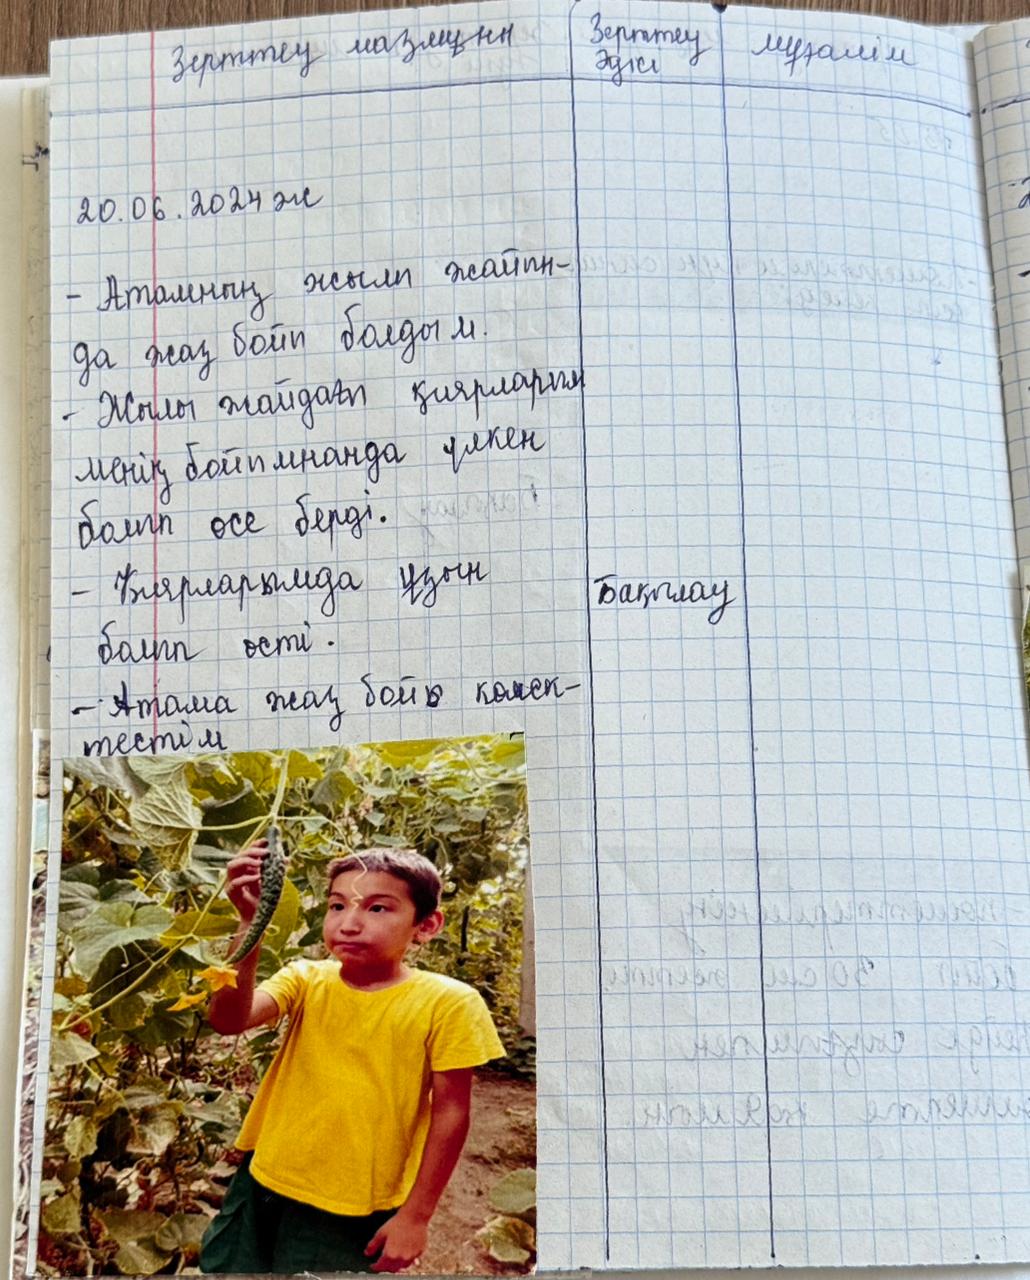 Зерттеу мазмұны
Зерттеу
Әдісі
мұғалім
20.06.2024 ж
- Атамның жылы жайын-
да жаз бойы болдым.
- Жылы жайдағы қиярларым
менің бойымнанда үлкен
болып өсе берді.
- Қиярларымда ұзын
болып өсті.
Бақылау
- Атама жаз бойы көмек-
тестім